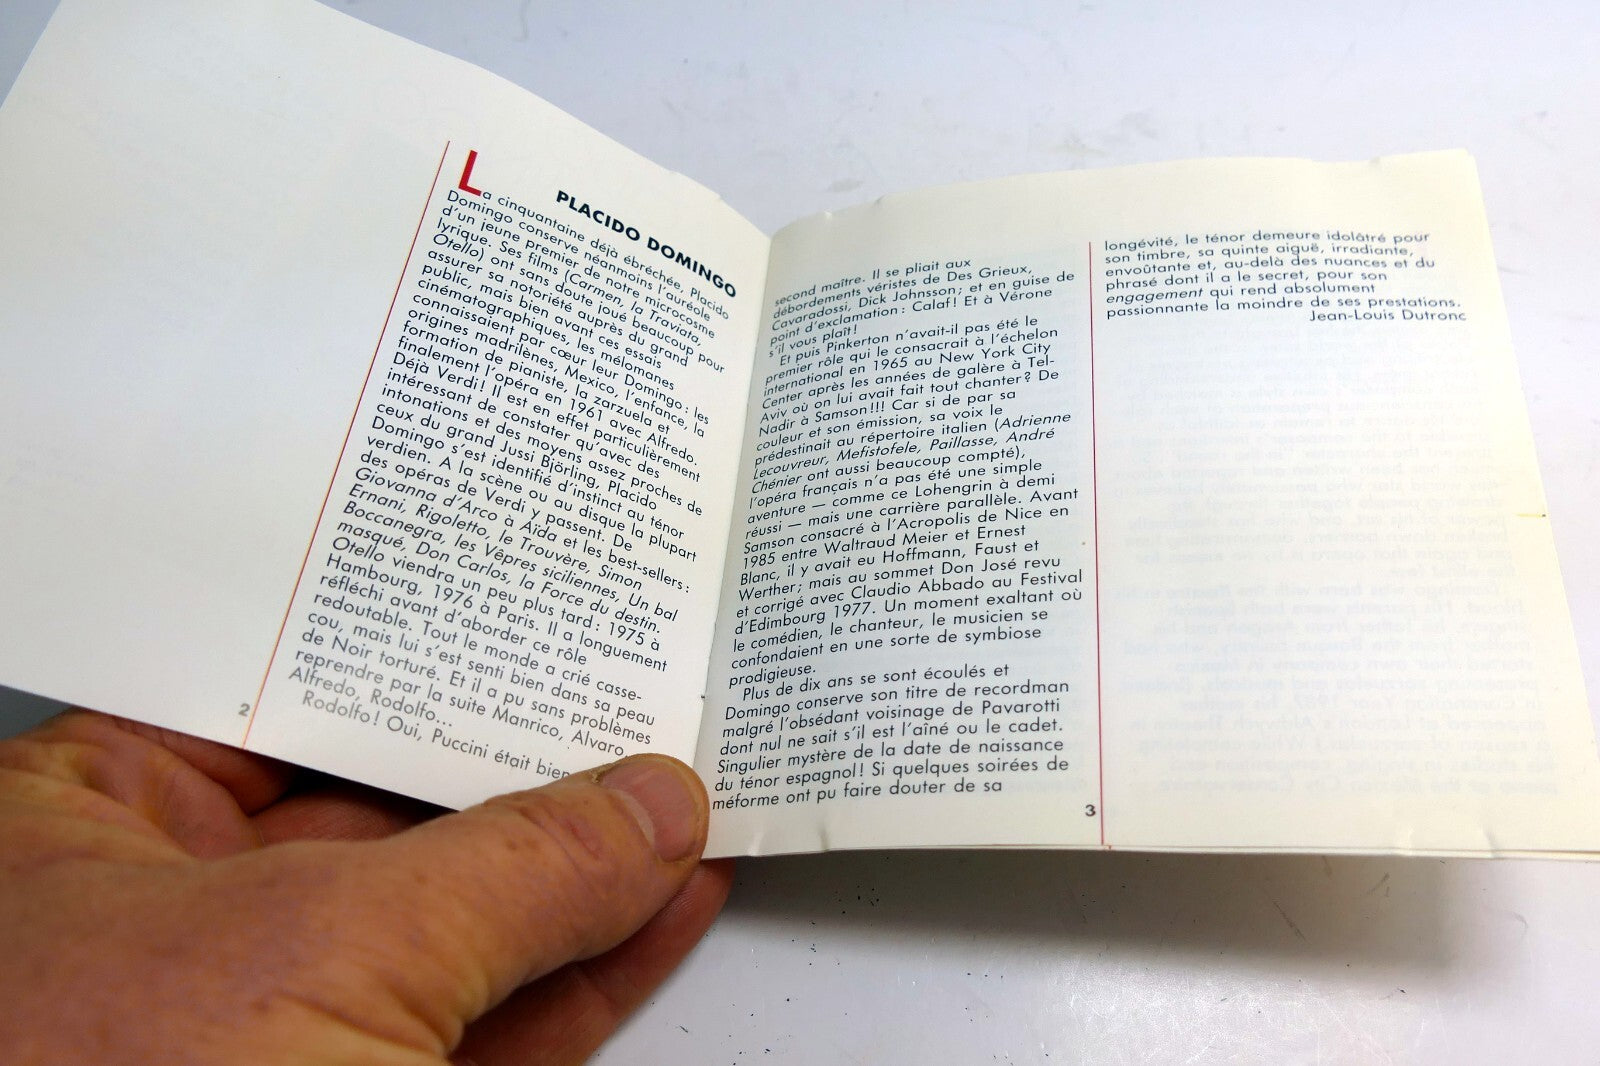 PLACIDO DOMINGO
La cinquantaine déjà ébréchée, Placido
Domingo conserve néanmoins l'auréole
d'un jeune premier de notre microcosme
lyrique. Ses films (Carmen, la Traviata,
Otello) ont sans doute joué beaucoup pour
assurer sa notoriété auprès du grand
public, mais bien avant ces essais
cinématographiques, les mélomanes
connaissaient par cœur leur Domingo : les
origines madrilènes, Mexico, l'enfance, la
formation de pianiste, la zarzuela et
finalement l'opéra en 1961 avec Alfredo.
Déjà Verdi ! Il est en effet particulièrement
intéressant de constater qu'avec des
intonations et des moyens assez proches de
ceux du grand Jussi Björling, Placido
Domingo s'est identifié d'instinct au ténor
verdien. A la scène ou au disque la plupart
des opéras de Verdi y passent. De
Giovanna d'Arco à Aïda et les best-sellers :
Ernani, Rigoletto, le Trouvère, Simon
Boccanegra, les Vêpres siciliennes, Un bal
masqué, Don Carlos, la Force du destin.
Otello viendra un peu plus tard : 1975 à
Hambourg, 1976 à Paris. Il a longuement
réfléchi avant d'aborder ce rôle
redoutable. Tout le monde a crié casse-
cou, mais lui s'est senti bien dans sa peau
de Noir torturé. Et il a pu sans problèmes
reprendre par la suite Manrico, Alvaro,
Alfredo, Rodolfo...
Rodolfo ! Oui, Puccini était bien
2
second maître. Il se pliait aux
débordements véristes de Des Grieux,
Cavaradossi, Dick Johnsson ; et en guise de
point d'exclamation : Calaf ! Et à Vérone
s'il vous plaît !
Et puis Pinkerton n'avait-il pas été le
premier rôle qui le consacrait à l'échelon
international en 1965 au New York City
Center après les années de galère à Tel-
Aviv où on lui avait fait tout chanter ? De
Nadir à Samson !!! Car si de par sa
couleur et son émission, sa voix le
prédestinait au répertoire italien (Adrienne
Lecouvreur, Mefistofele, Paillasse, André
Chénier ont aussi beaucoup compté),
l'opéra français n'a pas été une simple
aventure — comme ce Lohengrin à demi
réussi — mais une carrière parallèle. Avant
Samson consacré à l'Acropolis de Nice en
1985 entre Waltraud Meier et Ernest
Blanc, il y avait eu Hoffmann, Faust et
Werther ; mais au sommet Don José revu
et corrigé avec Claudio Abbado au Festival
d'Edimbourg 1977. Un moment exaltant où
le comédien, le chanteur, le musicien se
confondaient en une sorte de symbiose
prodigieuse.
Plus de dix ans se sont écoulés et
Domingo conserve son titre de recordman
malgré l'obsédant voisinage de Pavarotti
dont nul ne sait s'il est l'aîné ou le cadet.
Singulier mystère de la date de naissance
du ténor espagnol ! Si quelques soirées de
méforme ont pu faire douter de sa
3
longévité, le ténor demeure idolâtré pour
son timbre, sa quinte aiguë, irradiante,
envoûtante et, au-delà des nuances et du
phrasé dont il a le secret, pour son
engagement qui rend absolument
passionnante la moindre de ses prestations.
Jean-Louis Dutronc